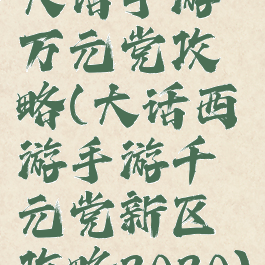 大话手游
万元党攻
略(大话西
游手游千
元党新区
攻略2020)